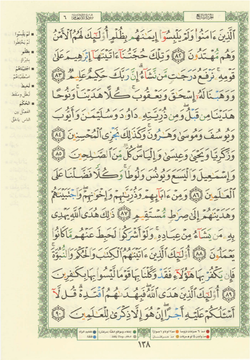 الَّذِينَ ءَامَنُوا وَلَمْ يَلْبِسُوا إِيمَٰنَهُم بِظُلْمٍ أُولَٰئِكَ لَهُمُ الْأَمْنُ
وَهُم مُّهْتَدُونَ ٨٢ وَتِلْكَ حُجَّتُنَا ءَاتَيْنَٰهَا إِبْرَٰهِيمَ عَلَىٰ
قَوْمِهِ نَرْفَعُ دَرَجَٰتٍ مَّن نَّشَاءُ إِنَّ رَبَّكَ حَكِيمٌ عَلِيمٌ ٨٣
وَوَهَبْنَا لَهُ إِسْحَٰقَ وَيَعْقُوبَ كُلًّا هَدَيْنَا وَنُوحًا
هَدَيْنَا مِن قَبْلُ وَمِن ذُرِّيَّتِهِ دَاوُدَ وَسُلَيْمَٰنَ وَأَيُّوبَ
وَيُوسُفَ وَمُوسَىٰ وَهَٰرُونَ وَكَذَٰلِكَ نَجْزِي الْمُحْسِنِينَ ٨٤
وَزَكَرِيَّا وَيَحْيَىٰ وَعِيسَىٰ وَإِلْيَاسَ كُلٌّ مِّنَ الصَّٰلِحِينَ ٨٥
وَإِسْمَٰعِيلَ وَالْيَسَعَ وَيُونُسَ وَلُوطًا وَكُلًّا فَضَّلْنَا عَلَى
الْعَٰلَمِينَ ٨٦ وَمِنْ ءَابَائِهِمْ وَذُرِّيَّٰتِهِمْ وَإِخْوَٰنِهِمْ وَاجْتَبَيْنَٰهُمْ
وَهَدَيْنَٰهُمْ إِلَىٰ صِرَٰطٍ مُّسْتَقِيمٍ ٨٧ ذَٰلِكَ هُدَى اللَّهِ يَهْدِي
بِهِ مَن يَشَاءُ مِنْ عِبَادِهِ وَلَوْ أَشْرَكُوا لَحَبِطَ عَنْهُم مَّا كَانُوا
يَعْمَلُونَ ٨٨ أُولَٰئِكَ الَّذِينَ ءَاتَيْنَٰهُمُ الْكِتَٰبَ وَالْحُكْمَ وَالنُّبُوَّةَ
فَإِن يَكْفُرْ بِهَا هَٰؤُلَاءِ فَقَدْ وَكَّلْنَا بِهَا قَوْمًا لَّيْسُوا بِهَا بِكَٰفِرِينَ ٨٩
أُولَٰئِكَ الَّذِينَ هَدَى اللَّهُ فَبِهُدَىٰهُمُ اقْتَدِهْ قُل لَّا
أَسْـَٔلُكُمْ عَلَيْهِ أَجْرًا إِنْ هُوَ إِلَّا ذِكْرَىٰ لِلْعَٰلَمِينَ ٩٠
١٣٨